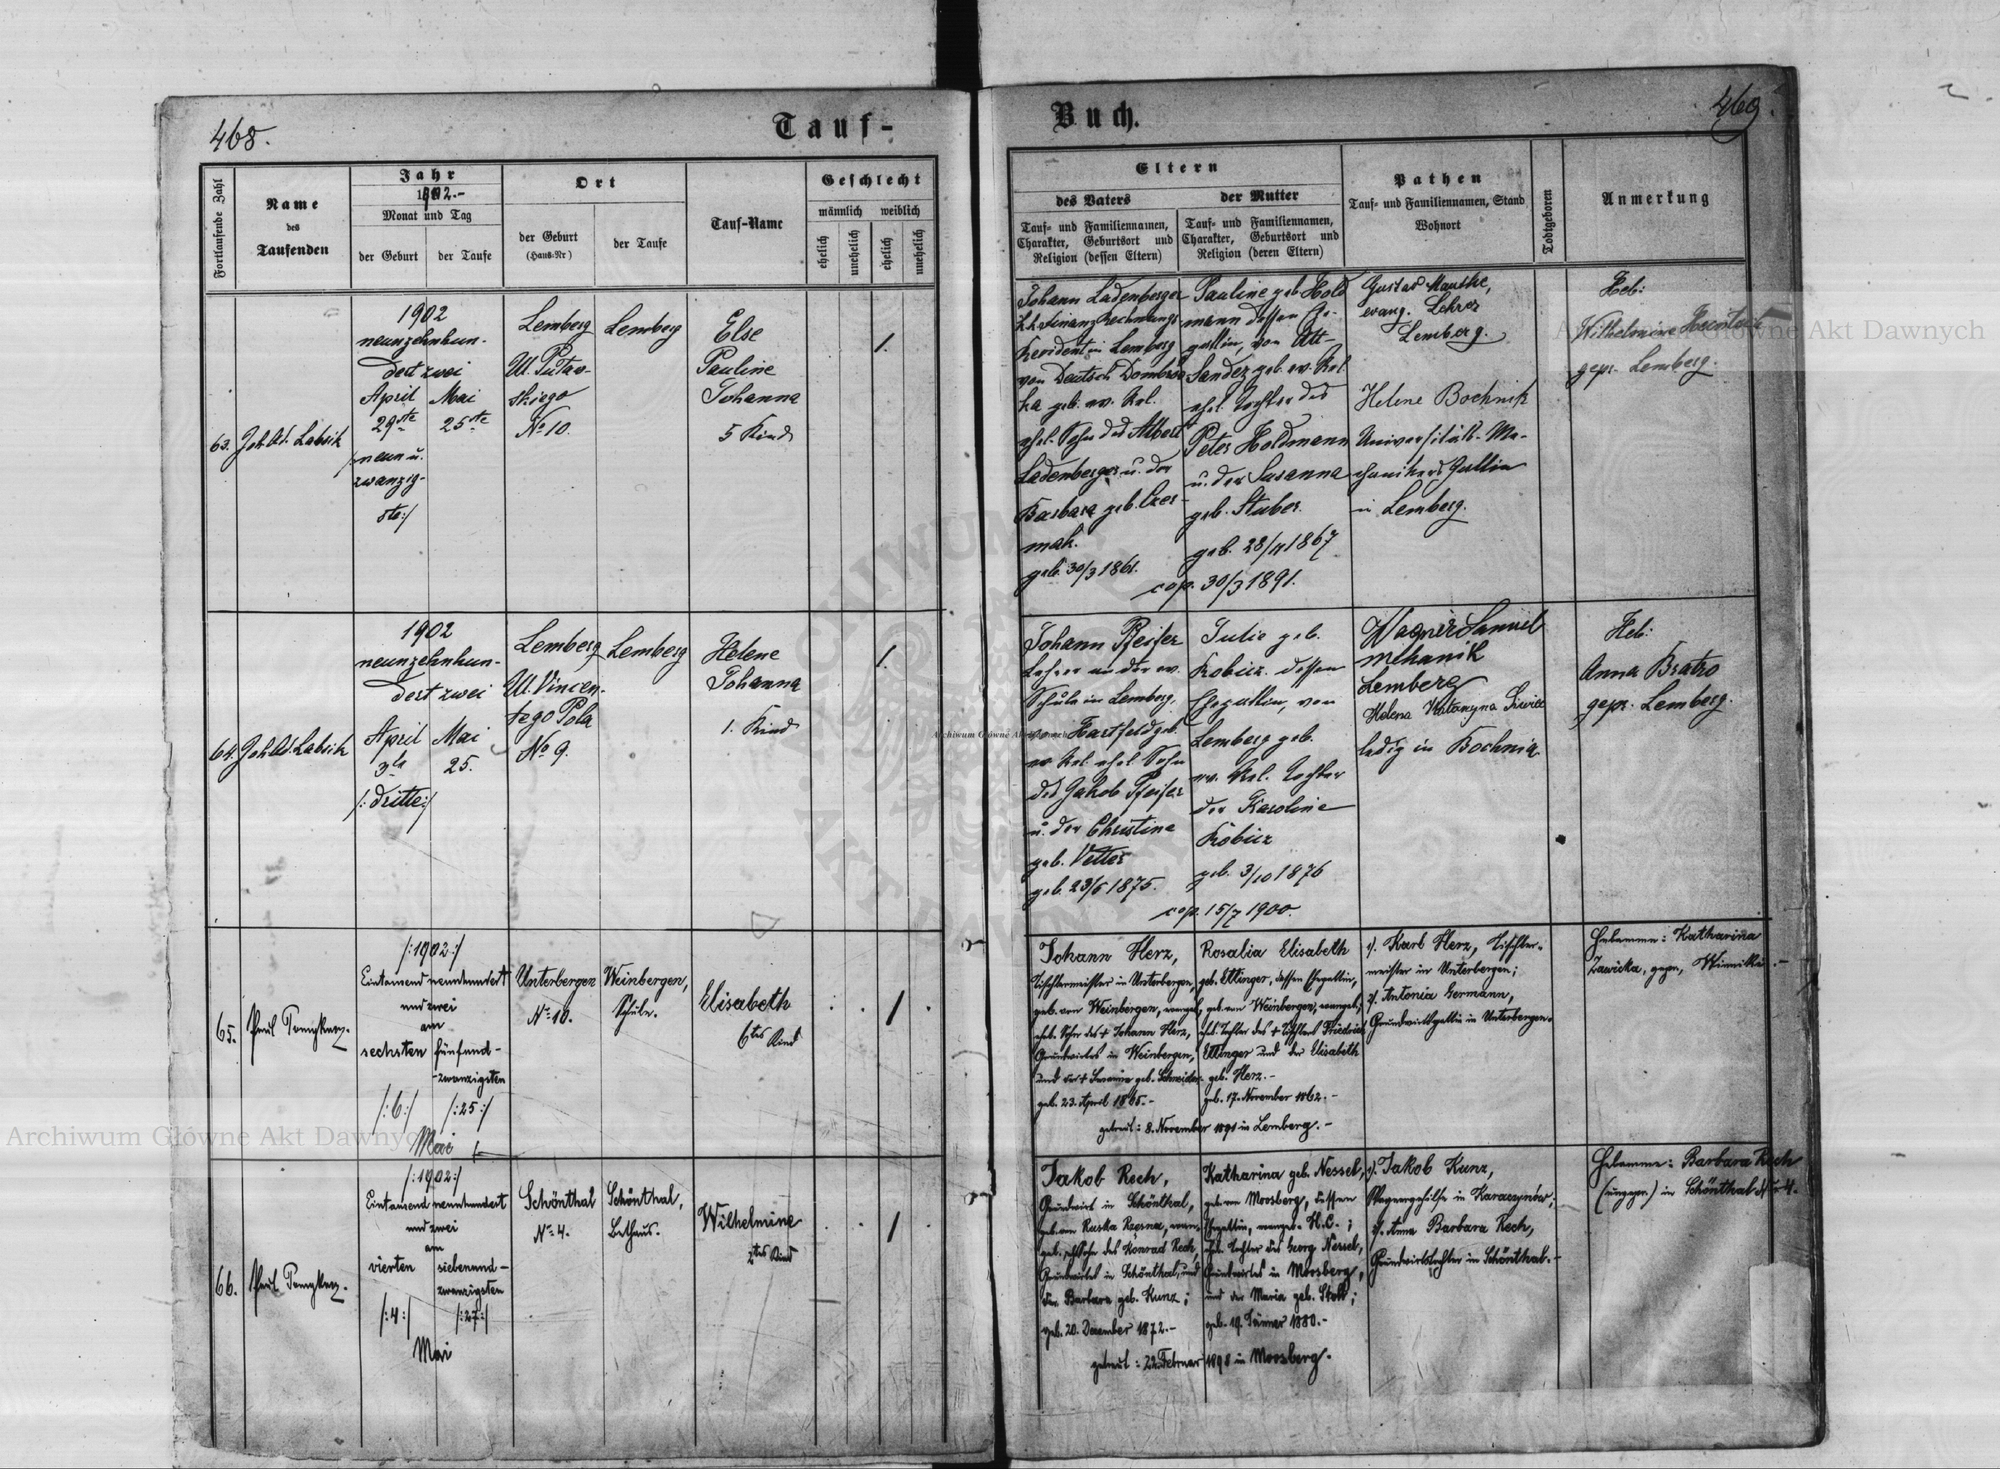 468.
Tauf-
Fortlaufende Zahl
Name
des
Taufenden
Jahr
1902.-
Monat und Tag
der Geburt
der Taufe
Ort
der Geburt
(Haus-Nr)
der Taufe
Tauf-Name
Geschlecht
männlich weiblich
ehelich
unehelich
ehelich
unehelich
63.
Joh. Ad. Labsik
1902
neunzehnhun-
dert zwei
April Mai
29te 25te
/:neun u.
zwanzig-
ste:/
Lemberg
Ul.
skiego
No 10.
Lemberg
Else
Pauline
Johanna
5 Kind
1.
64.
Joh. Ad. Labsik
1902
neunzehnhun-
dert zwei
April Mai
3te 25.
/:dritte:/
Lemberg
Ul. Vincen-
tego Pola
No 9.
Lemberg
Helene
Johanna
1. Kind
1.
65.
Paul
/:1902:/
Eintausend neunhundert
und zwei
am
sechsten fünfund-
-zwanzigsten
/:6:/ /:25:/
Mai
Unterbergen
No 10.
Weinbergen,
Schule.
Elisabeth
6tes Kind
1
66.
Paul
/:1902:/
Eintausend neunhundert
und zwei
am
vierten siebenund-
zwanzigsten
/:4:/ /:27:/
Mai
Schönthal
No 4.
Schönthal,
Bethaus.
Wilhelmine
2tes Kind
1
Buch.
469.
Eltern
des Vaters
Tauf- und Familiennamen,
Charakter, Geburtsort und
Religion (dessen Eltern)
der Mutter
Tauf- und Familiennamen,
Charakter, Geburtsort und
Religion (deren Eltern)
Pathen
Tauf- und Familiennamen, Stand
Wohnort
Todtgeboren
Anmerkung
Johann Ladenberger
k.k. Finanz Rechnungs
Revident in Lemberg
von Deutsch Dombrow
ka geb. ev. Rel.
ehel. Sohn des Albert
Ladenberger u. der
Barbara geb. Czer-
mak.
geb. 30/3 1861.
Pauline geb. Hold
mann dessen Ge-
gattin, von Alt-
Sandez geb. ev. Rel
ehel. Tochter des
Peter Holdmann
u. der Susanna
geb. Stuber.
geb. 28/11 1867
cop. 30/3 1891.
Gustav Mauthe,
evang. Lehrer
Lemberg.
Helene Bochnik
Universitäts-Me-
chanikers Gattin
in Lemberg.
Heb:
Wilhelmine
gepr. Lemberg.
Johann Pfeifer
Lehrer an der ev.
Schule in Lemberg,
von Hartfeld geb.
ev Rel ehel Sohn
des Jakob Pfeifer
u. der Christine
geb. Vetter
geb. 23/5 1875.
Julie geb.
Kobierz dessen
Ehegattin, von
Lemberg geb.
ev. Rel. Tochter
der Karoline
Kobierz
geb. 3/10 1876
cop. 15/7 1900.
Wagner Samuel
mechanik
Lemberg
Helena Katarzyna
ledig in Bochnia.
Heb:
Anna Bratro
gepr. Lemberg.
Johann Herz,
Tischlermeister in Unterbergen,
geb. von Weinbergen, evangel.,
ehel. Sohn des + Johann Herz,
Grundwirtes in Weinbergen,
und der + Susanna geb. Schneider.
geb. 23. April 1865.-
Rosalia Elisabeth
geb. Ettinger, dessen Ehegattin,
geb. von Weinbergen, evangel.;
ehel. Tochter des + Tischlers Friedrich
Ettinger und der Elisabeth
geb. Herz.-
geb. 17. November 1862.-
getraut: 8. November 1891 in Lemberg.-
1). Karl Herz, Tischler-
meister in Unterbergen;
2). Antonia Germann,
Grundwirtsgattin in Unterbergen.
Hebamme: Katharina
Zawicka, gepr., Winniki.-
Jakob Rech,
Grundwirt in Schönthal,
geb. von Ruska Rzesna, evan-
gel., ehel. Sohn des Konrad Rech,
Grundwirtes in Schönthal, und
der Barbara geb. Kunz;
geb. 20. Dezember 1872.-
Katharina geb. Nessel,
geb. von Moosberg, dessen
Ehegattin, evangel. H.C.;
ehel. Tochter des Georg Nessel,
Grundwirtes in Moosberg,
und der Maria geb. Stoll;
geb. 19. Jänner 1880.-
getraut: 22. Februar 1898 in Moosberg.
1). Jakob Kunz,
Wagnergehilfe in Karaczynów;
2). Anna Barbara Rech,
Grundwirtstochter in Schönthal.-
Hebamme: Barbara Rech
(ungepr.) in Schönthal Nr 4.
Archiwum Główne Akt Dawnych
Archiwum Główne Akt Dawnych
Archiwum Główne Akt Dawnych